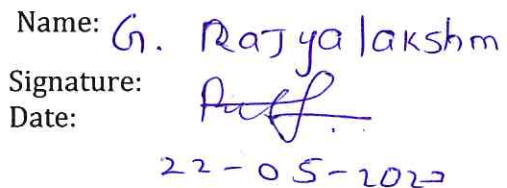 Name: G. Rajyalakshm
Signature:
Date:
22-05-2022